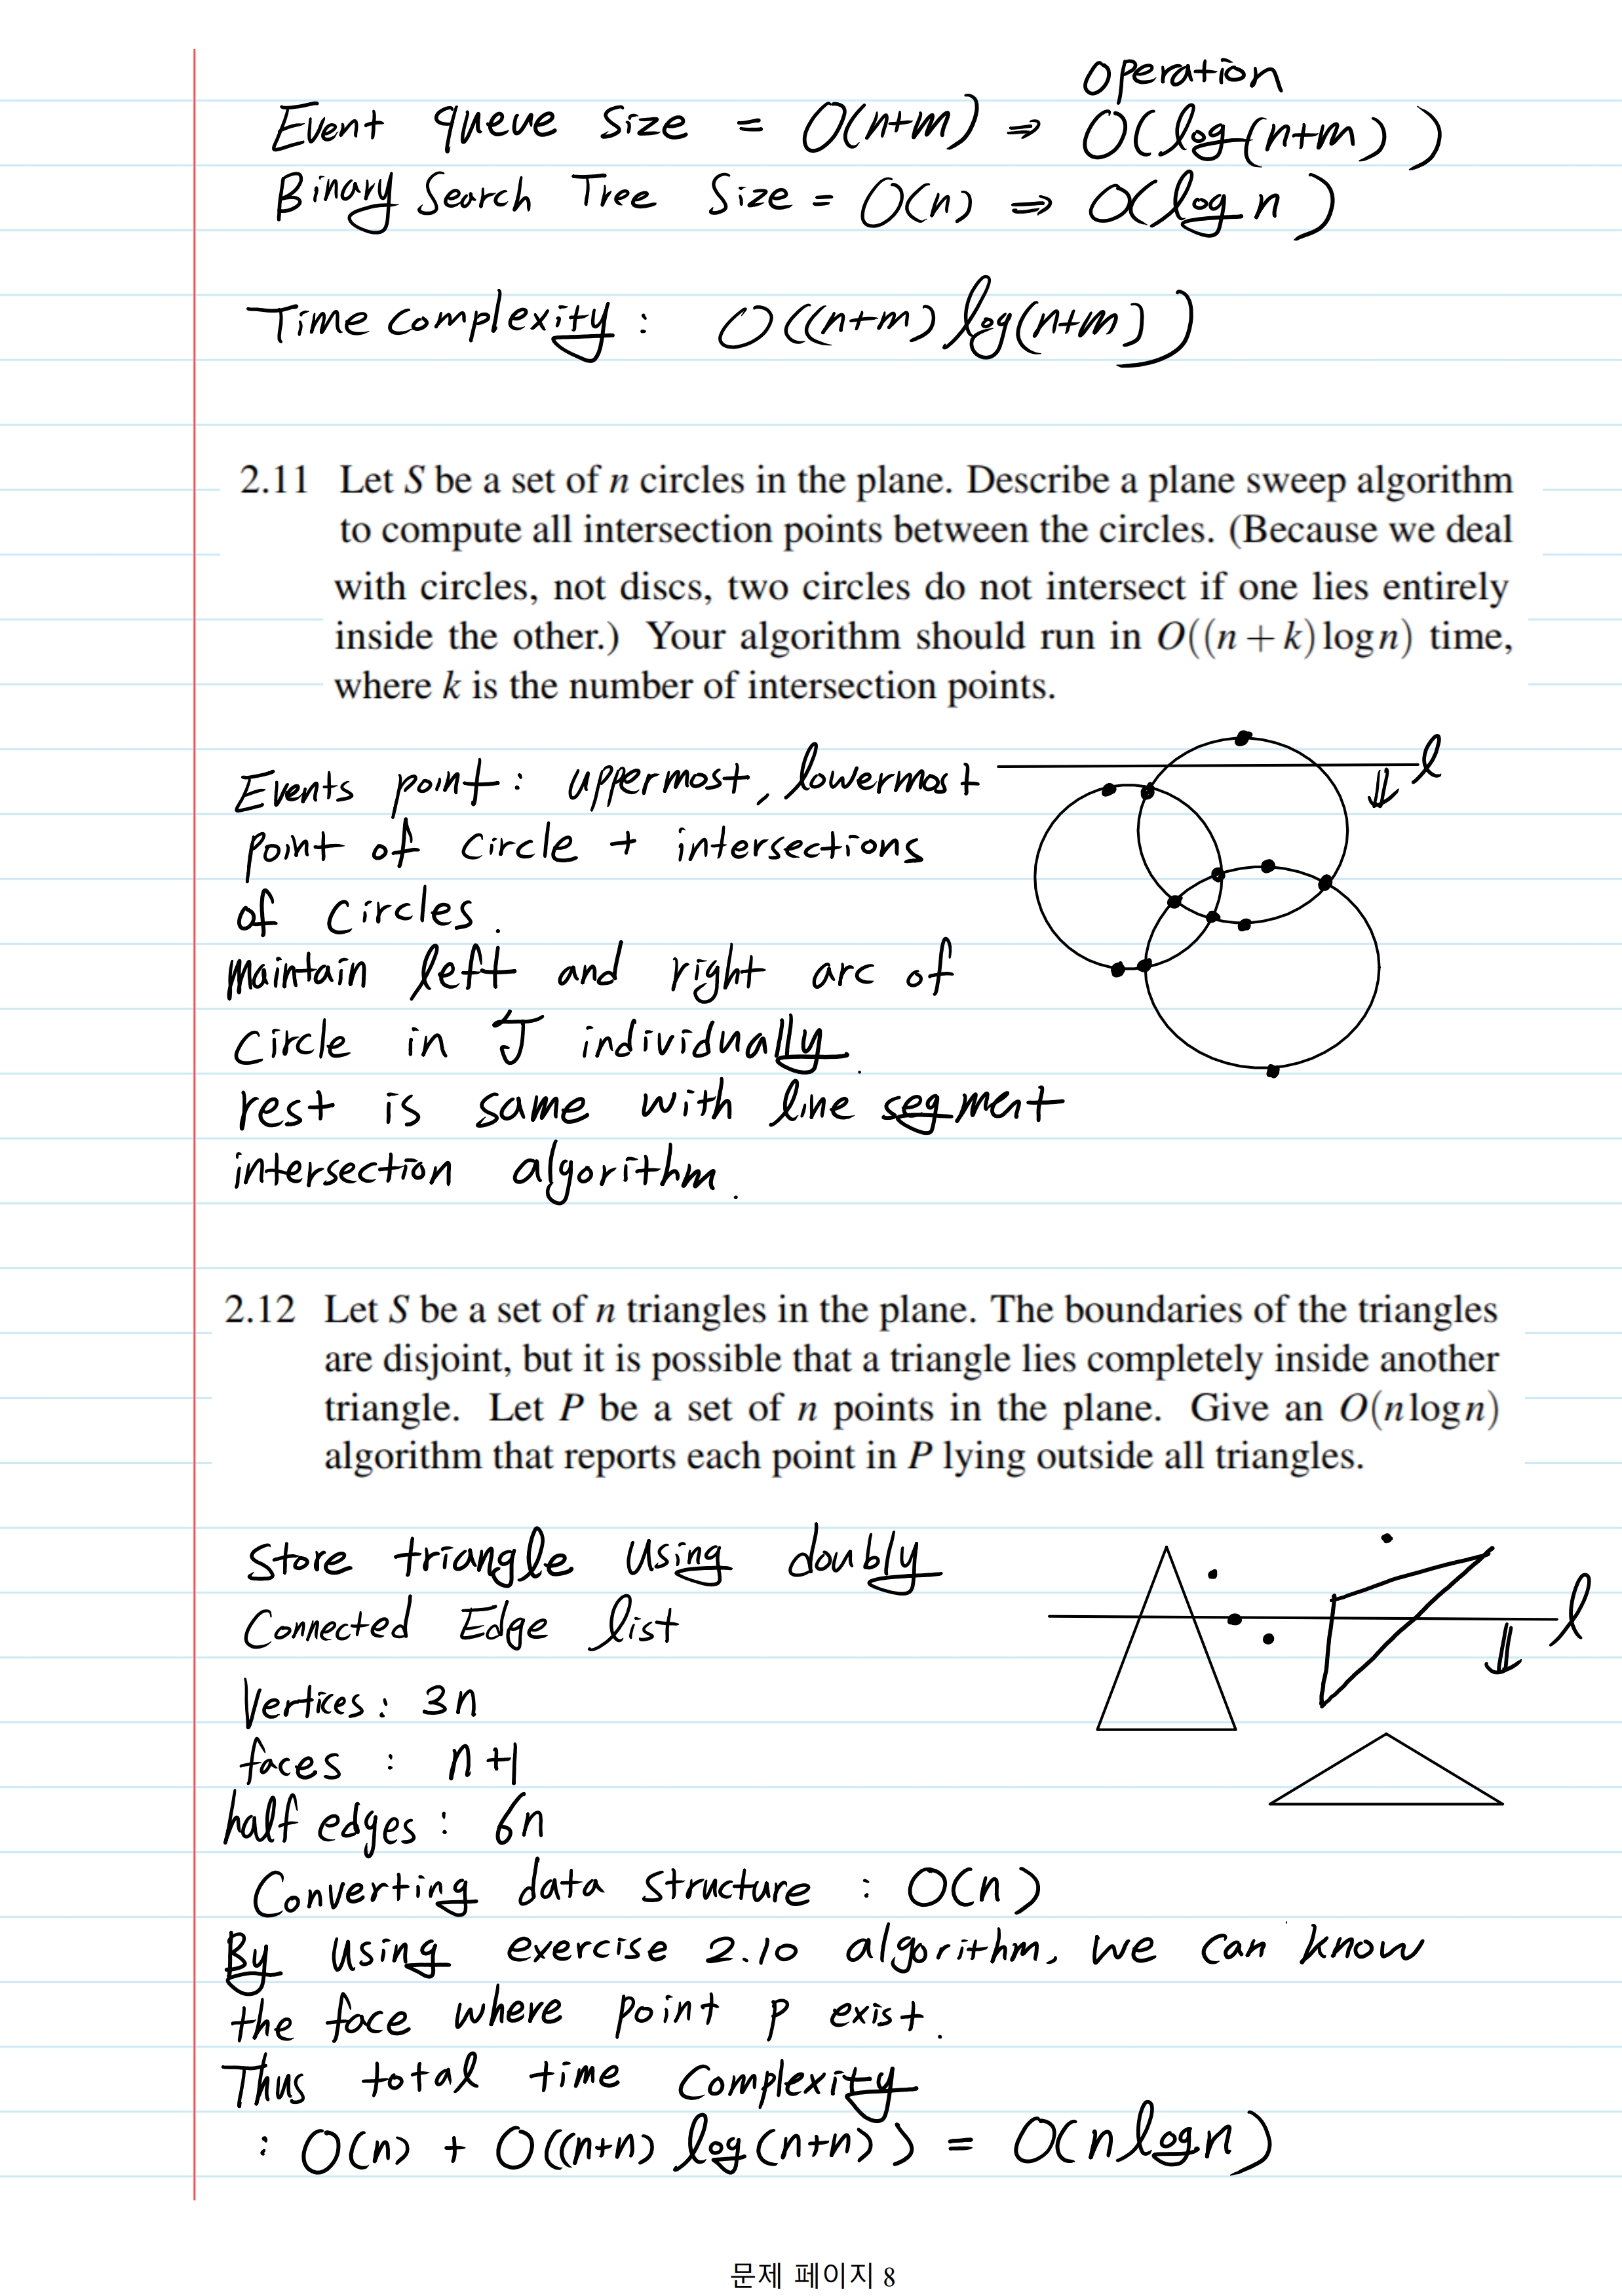 operation
Event queue size = O(n+m) ⇒ O(log(n+m))
Binary Search Tree Size = O(n) ⇒ O(log n)
Time complexity : O((n+m) log(n+m))
2.11 Let S be a set of n circles in the plane. Describe a plane sweep algorithm
to compute all intersection points between the circles. (Because we deal
with circles, not discs, two circles do not intersect if one lies entirely
inside the other.) Your algorithm should run in O((n+k)logn) time,
where k is the number of intersection points.
Events point : uppermost, lowermost
point of circle + intersections
of circles.
maintain left and right arc of
circle in J individually.
rest is same with line segment
intersection algorithm.
l
2.12 Let S be a set of n triangles in the plane. The boundaries of the triangles
are disjoint, but it is possible that a triangle lies completely inside another
triangle. Let P be a set of n points in the plane. Give an O(nlogn)
algorithm that reports each point in P lying outside all triangles.
Store triangle using doubly
Connected Edge list
l
Vertices : 3n
faces : n+1
half edges : 6n
Converting data structure : O(n)
By using exercise 2.10 algorithm, we can know
the face where point p exist.
Thus total time Complexity
: O(n) + O((n+n) log(n+n)) = O(n log n)
문제 페이지 8